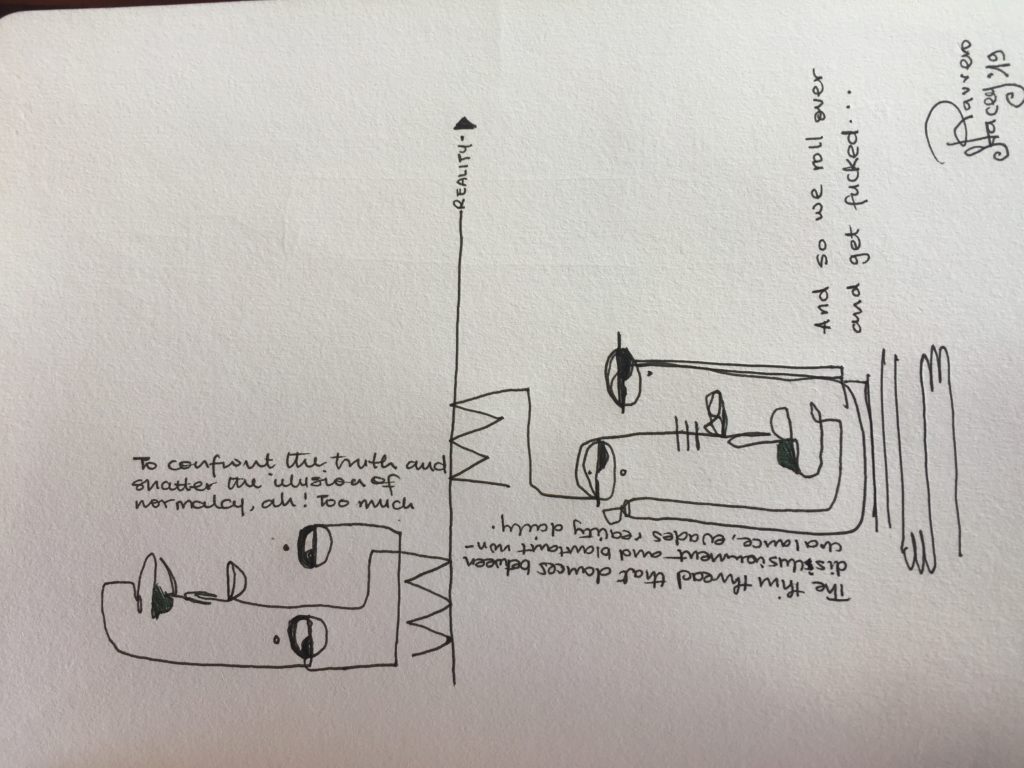 To confront the truth and
shatter the illusion of
normalcy, ah! Too much
REALITY.
The thin thread that dances between
disillusionment and blawtawt non-
chalance, evades reality daily.
And so we roll over
and get fucked...
Stacey '19